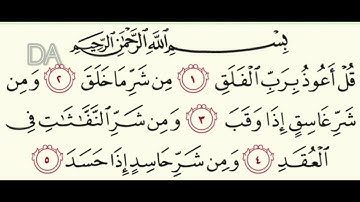 DA
بِسْمِ اللَّهِ الرَّحْمَٰنِ الرَّحِيمِ
قُلْ أَعُوذُ بِرَبِّ الْفَلَقِ ١ مِن شَرِّ مَا خَلَقَ ٢ وَمِن
شَرِّ غَاسِقٍ إِذَا وَقَبَ ٣ وَمِن شَرِّ النَّفَّاثَاتِ فِي
الْعُقَدِ ٤ وَمِن شَرِّ حَاسِدٍ إِذَا حَسَدَ ٥